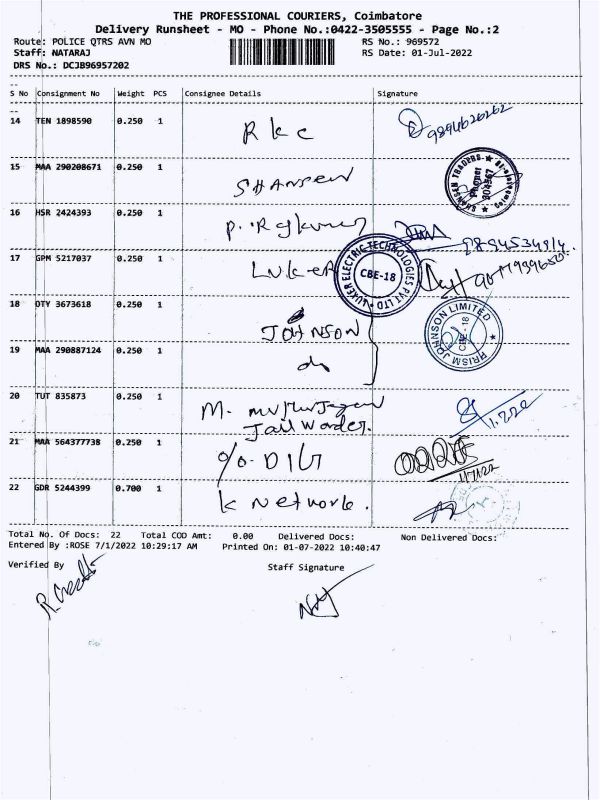 THE PROFESSIONAL COURIERS, Coimbatore
Delivery Runsheet - MO - Phone No.:0422-3505555 - Page No.:2
Route: POLICE QTRS AVN MO RS No.: 969572
Staff: NATARAJ RS Date: 01-Jul-2022
DRS No.: DCJB96957202
S No Consignment No Weight PCS Consignee Details Signature
14 TEN 1898590 0.250 1 R k c 9894626262
15 MAA 290208671 0.250 1 SHANSEN
SHANSER TRADERS
16 HSR 2424393 0.250 1
17 GPM 5217037 0.250 1 LUKER
LUKER ELECTRIC TECHNOLOGIES PVT LTD
CBE-18
18 OTY 3673618 0.250 1 JOHNSON
PRISM JOHNSON LIMITED
CBE - 18
19 MAA 290887124 0.250 1 do
20 TUT 835873 0.250 1 M.
Jail Warder. 1.7.22
21 MAA 564377738 0.250 1 1/7/22
22 GDR 5244399 0.700 1 K Network.
Total No. Of Docs: 22 Total COD Amt: 0.00 Delivered Docs: Non Delivered Docs:
Entered By :ROSE 7/1/2022 10:29:17 AM Printed On: 01-07-2022 10:40:47
Verified By Staff Signature